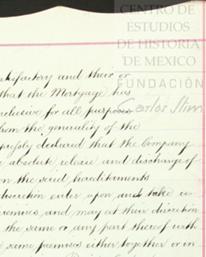 CENTRO DE
ESTUDIOS
DE HISTORIA
DE MEXICO
FUNDACIÓN
Carlos Slim
satisfactory and their or
that the Mortgage has
exclusive for all purposes
from the generality of the
expressly declared that the Company
absolute release and discharge of
the said hereditaments
discretion enter upon and take
premises and may at their discretion
the same or any part thereof with
same premises either together or in